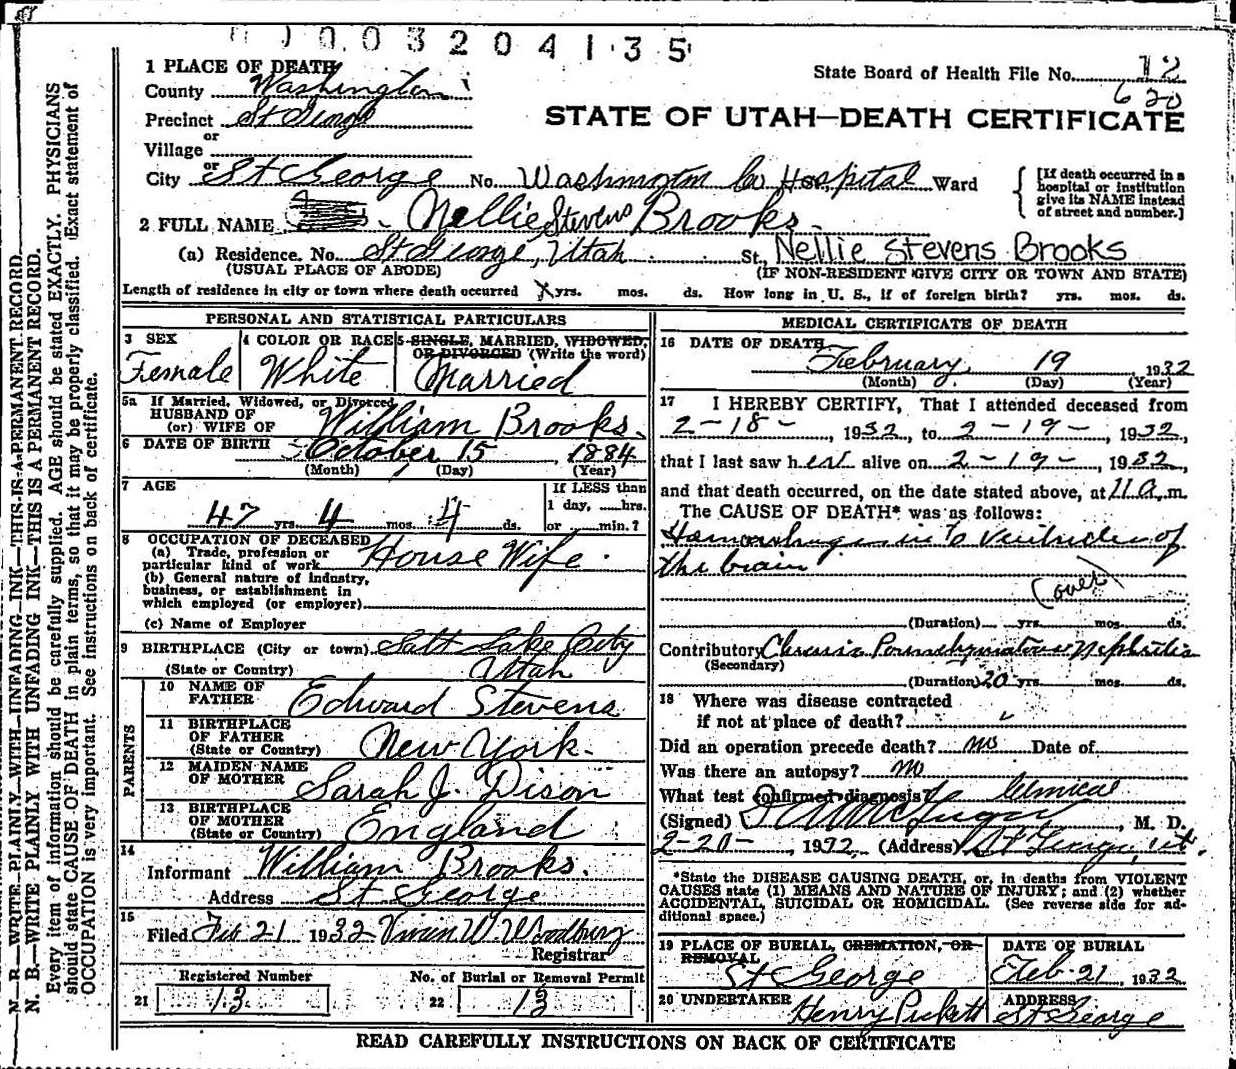 0 0 0 0 3 2 0 4 1 3 5
1 PLACE OF DEATH
State Board of Health File No. 12
620
County Washington
Precinct St George
STATE OF UTAH—DEATH CERTIFICATE
or
Village
or
City St George No. Washington Co Hospital Ward
[If death occurred in a hospital or institution give its NAME instead of street and number.]
2 FULL NAME Nellie Stevens Brooks
(a) Residence. No. St George, Utah St. Nellie Stevens Brooks
(USUAL PLACE OF ABODE) (IF NON-RESIDENT GIVE CITY OR TOWN AND STATE)
Length of residence in city or town where death occurred yrs. mos. ds. How long in U. S., if of foreign birth? yrs. mos. ds.
PERSONAL AND STATISTICAL PARTICULARS
3 SEX
Female
4 COLOR OR RACE
White
5 SINGLE, MARRIED, WIDOWED,
OR DIVORCED (Write the word)
Married
5a If Married, Widowed, or Divorced
HUSBAND OF
(or) WIFE OF William Brooks.
6 DATE OF BIRTH October 15, 1884
(Month) (Day) (Year)
7 AGE
47 yrs. 4 mos. 4 ds.
If LESS than
1 day, hrs.
or min.?
8 OCCUPATION OF DECEASED
(a) Trade, profession or
particular kind of work House Wife
(b) General nature of industry,
business, or establishment in
which employed (or employer)
(c) Name of Employer
9 BIRTHPLACE (City or town) Salt Lake City
(State or Country) Utah
PARENTS
10 NAME OF
FATHER Edward Stevens
11 BIRTHPLACE
OF FATHER
(State or Country) New York.
12 MAIDEN NAME
OF MOTHER Sarah J. Dison
13 BIRTHPLACE
OF MOTHER
(State or Country) England
14
Informant William Brooks.
Address St George
15
Filed Feb 21 1932 Vivian W. Woodbury
Registrar
Registered Number
21 13
No. of Burial or Removal Permit
22 13
MEDICAL CERTIFICATE OF DEATH
16 DATE OF DEATH
February 19 1932
(Month) (Day) (Year)
17 I HEREBY CERTIFY, That I attended deceased from
2-18-, 1932, to 2-19-, 1932,
that I last saw her alive on 2-19-, 1932,
and that death occurred, on the date stated above, at 11 a.m.
The CAUSE OF DEATH* was as follows:
Hemorrhage in to Ventricles of
the brain
(over)
(Duration) yrs. mos. ds.
Contributory Chronic Parenchymatous Nephritis
(Secondary)
(Duration) 20 yrs. mos. ds.
18 Where was disease contracted
if not at place of death?
Did an operation precede death? no Date of
Was there an autopsy? no
What test confirmed diagnosis? Clinical
(Signed) McGregor, M. D.
2-20-, 1932, (Address) St George, Ut.
*State the DISEASE CAUSING DEATH, or, in deaths from VIOLENT
CAUSES state (1) MEANS AND NATURE OF INJURY; and (2) whether
ACCIDENTAL, SUICIDAL OR HOMICIDAL. (See reverse side for ad-
ditional space.)
19 PLACE OF BURIAL, CREMATION, OR
REMOVAL
St George
DATE OF BURIAL
Feb-21, 1932
20 UNDERTAKER
Henry Pickett
ADDRESS
St George
READ CAREFULLY INSTRUCTIONS ON BACK OF CERTIFICATE
N. B.—WRITE PLAINLY—WITH—UNFADING—INK—THIS—IS—A—PERMANENT—RECORD.
N. B.—WRITE PLAINLY WITH UNFADING INK—THIS IS A PERMANENT RECORD.
Every item of information should be carefully supplied. AGE should be stated EXACTLY. PHYSICIANS
should state CAUSE OF DEATH in plain terms, so that it may be properly classified. Exact statement of
OCCUPATION is very important. See instructions on back of certificate.